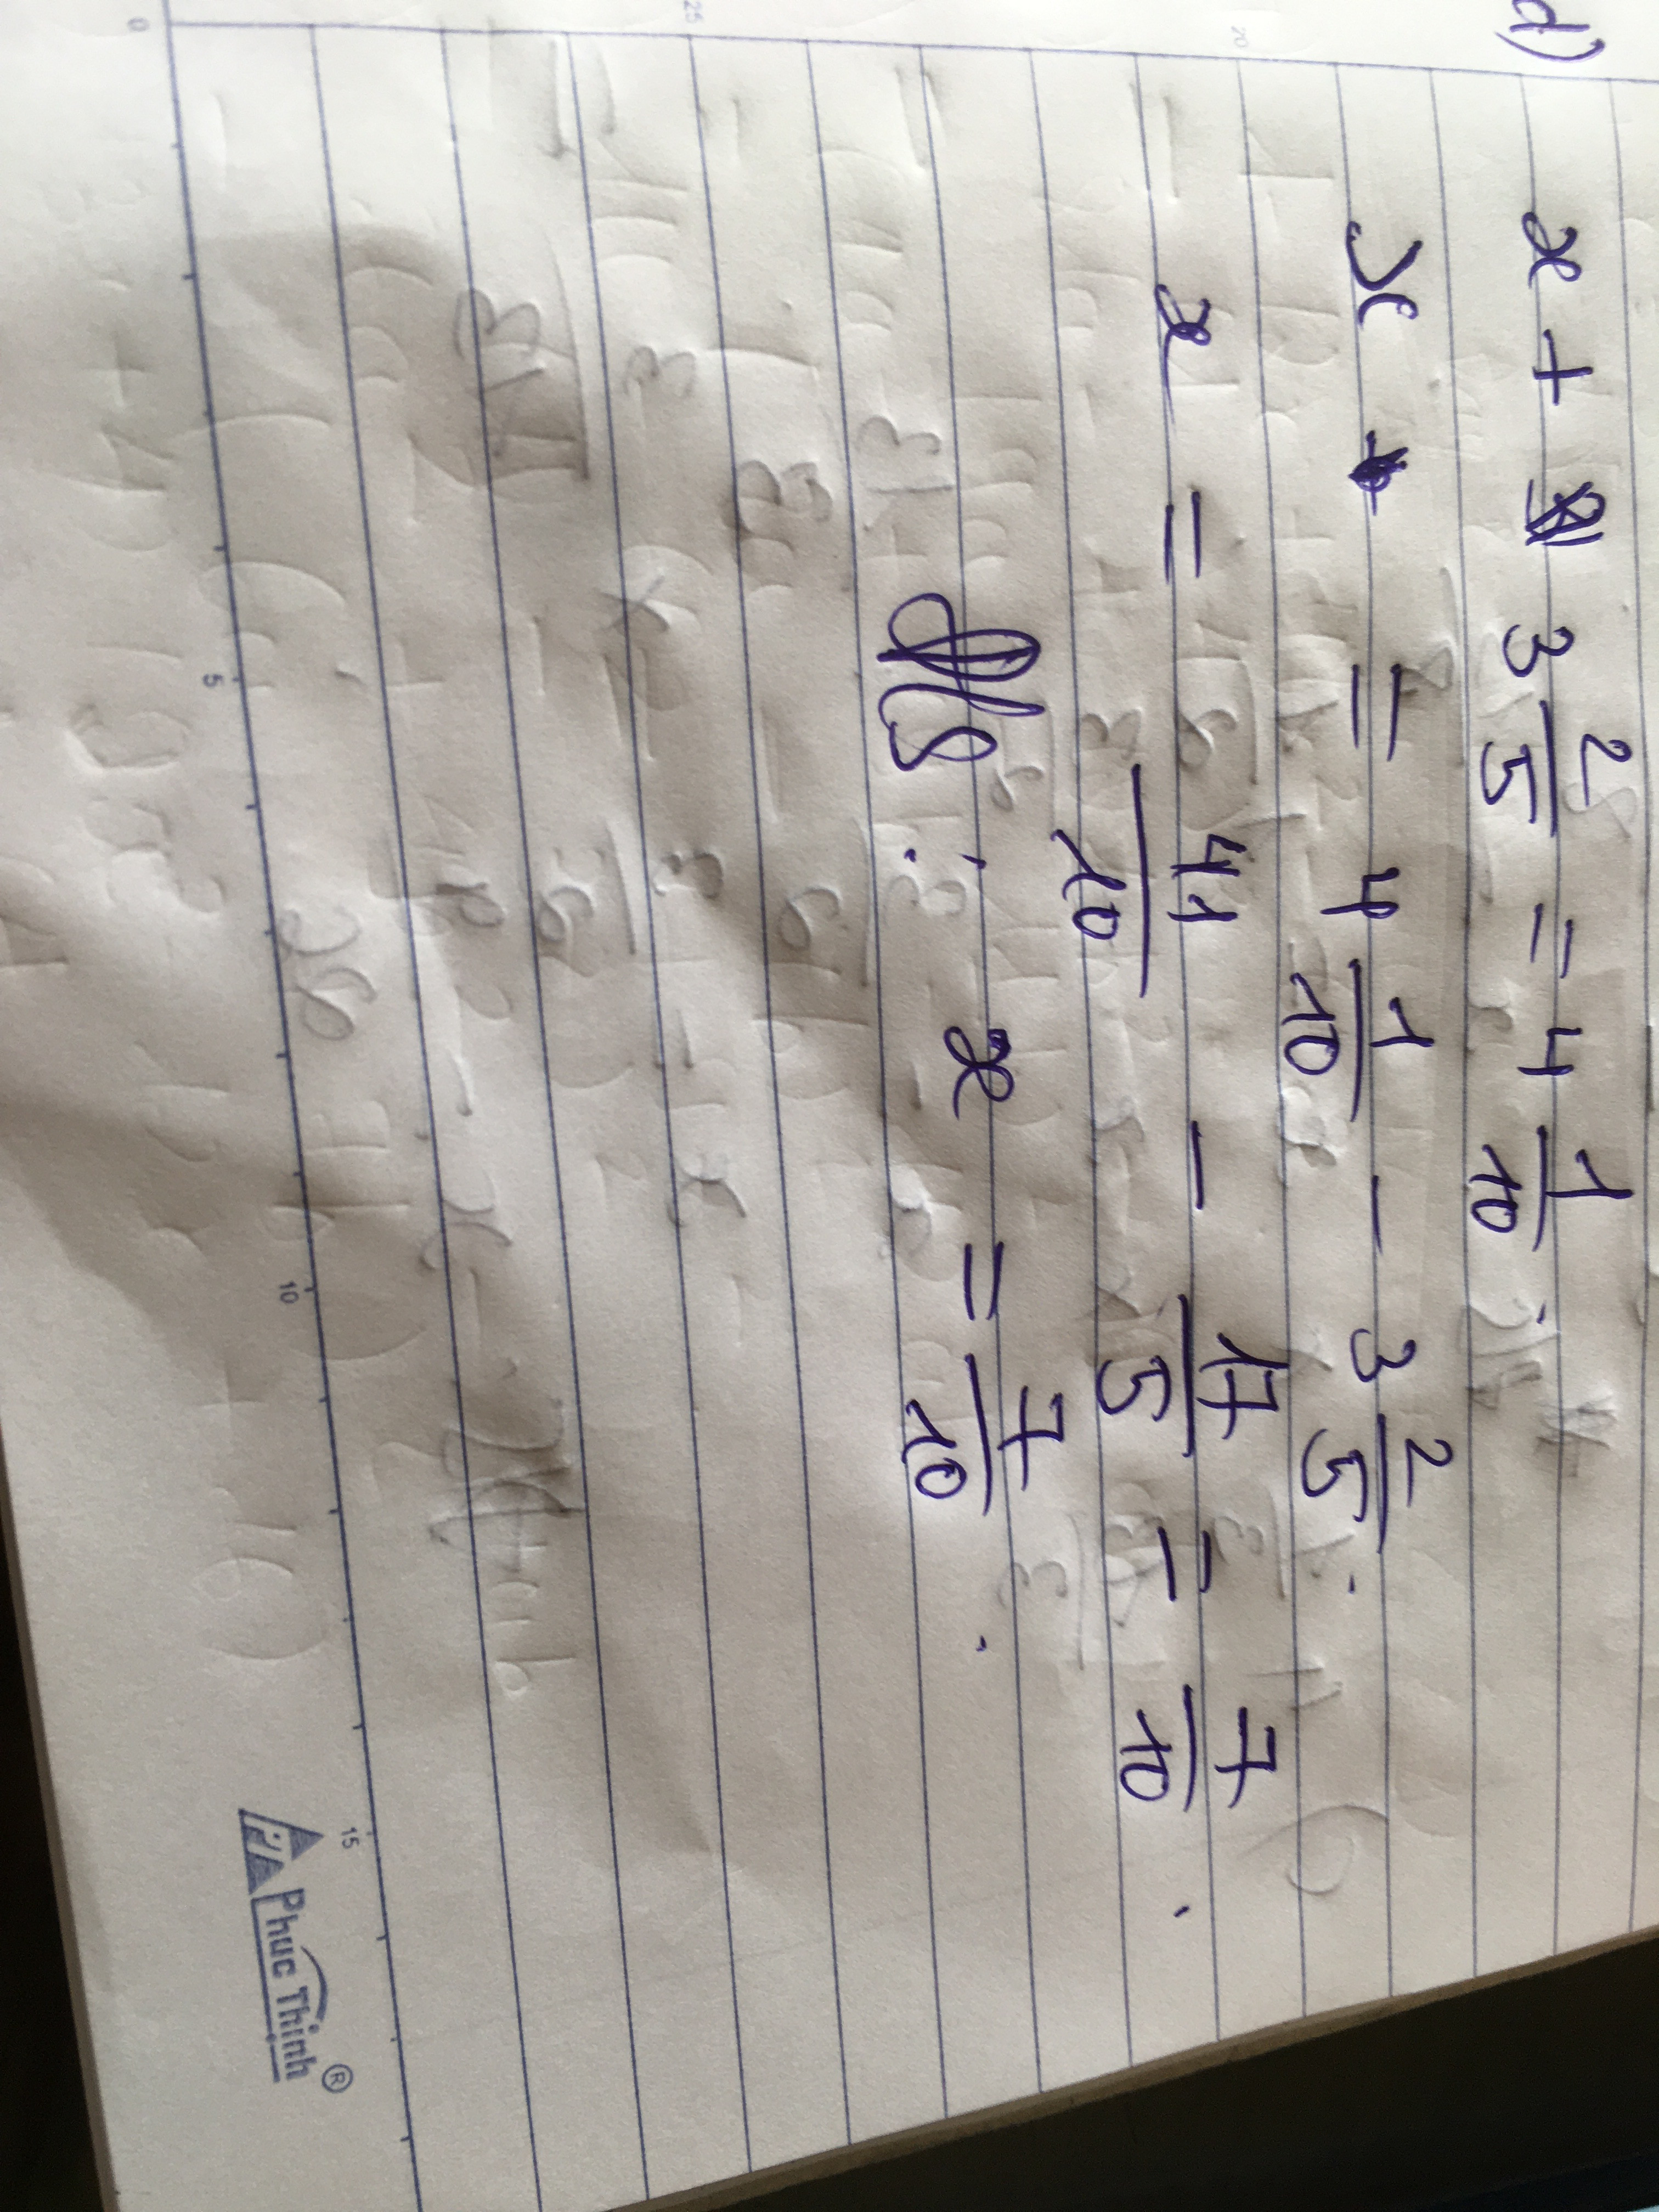 d) x + 3 2/5 = 4 1/10.
x = 4 1/10 - 3 2/5.
x = 41/10 - 17/5 = 7/10.
ĐS: x = 7/10.
0 5 10 15
20 25
Phuc Thinh ®